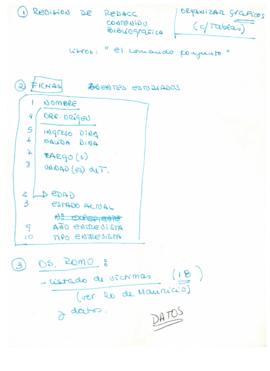 ① REVISION DE REDACC.
CONTENIDO
BIBLIOGRÁFICA
ORGANIZAR GRÁFICOS
(c/Tablas)
Libros: "El comando conjunto"
② FICHAS AGENTES ESTUDIADOS
1 NOMBRE
4 ORG. ORIGEN
5 INGRESO DINA
6 SALIDA DINA
7 CARGO(S)
8 UNIDAD(ES) INT.
2 EDAD
3 ESTADO ACTUAL
9 AÑO ENTREVISTA
10 TIPO ENTREVISTA
③ OS. ROMO:
- Listado de víctimas (18)
(ver lo de Mauricio)
y datos.
DATOS